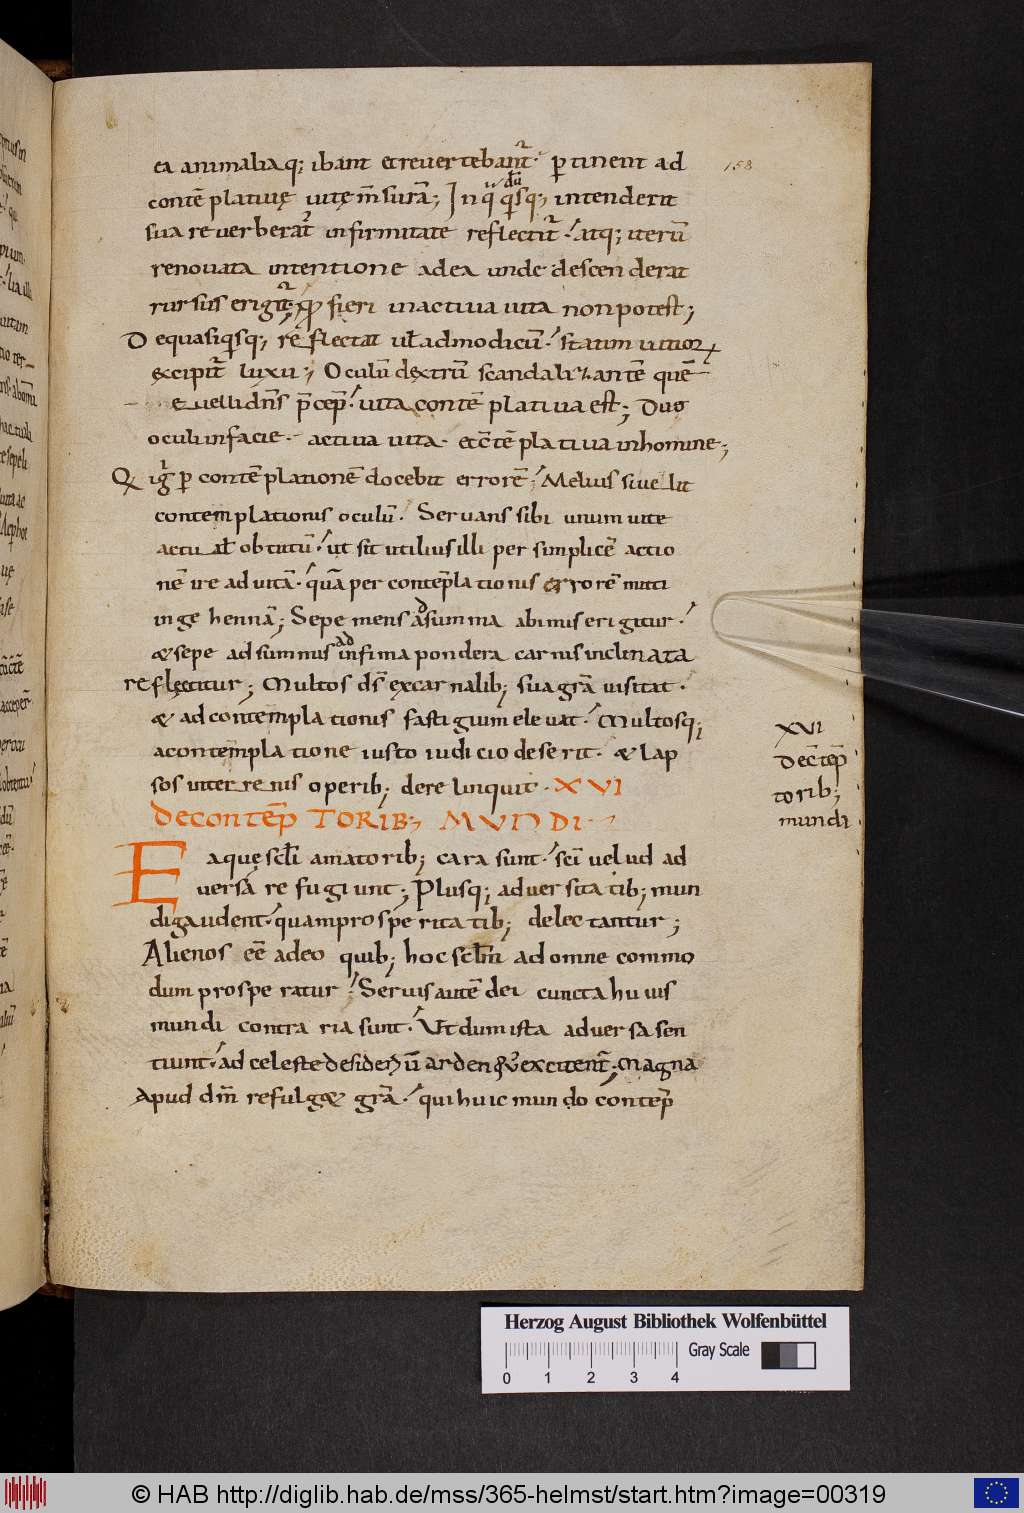 ea animaliaq; ibant et revertebant̃. ꝑtinent ad
158
contēplativę vitę m̄surā; In q̈ dū qͥsq; intenderit
sua reverberat̃ infirmitate reflectit̃. atq; iterū
renovata intentione ad ea unde descenderat
rursus erigit̃. qd̄ fieri in activa vita non potest;
De qua si qͥsq; reflectat̃ vel ad modicū. statim vitioꝝ
excipit̃ luxu; Oculū dextrū scandalizantē quē
evelli dn̄s p̄cep̄. vita contēplativa est; Duo
oculi in facie. activa vita. et c̄tēplativa in homine;
Qͥ igͥ ꝑ contēplationē docebit errorē; Melius si vellit
contemplationis oculū. Servans sibi unum vite
actualē obtutū. ut sit utilius illi per simplicē actio
nē ire ad vitā. quā per contēplationis errorē mitti
in gehennā; Sepe mens ad summa ab imis erigitur.
& sepe ad summis ad infima pondera carnis inclinata
reflectitur; Multos ds̄ ex carnalib; sua grā visitat.
& ad contemplationis fastigium elevat. Multosq;
a contemplatione iusto iudicio deserit. & lap
sos in terrenis operib; derelinquit. XVI
DE CONTĒPTORIB; MUNDI
XVI
De c̄tēp
torib;
mundi
Ea quę scl̄i amatorib; cara sunt. scī velud ad
versā refugiunt; Plusq; adversitatib; mun
di gaudent. quam prosperitatib; delectantur;
Alienos eē a deo quib; hoc scl̄m ad omne commo
dum prosperatur. Servis autē dei cuncta huius
mundi contraria sunt. Ut dum ista adversa sen
tiunt. ad celeste desideriū ardentiꝰ excitent̃; Magna
Apud dm̄ refulget grā. qui huic mundo contēp
Herzog August Bibliothek Wolfenbüttel
Gray Scale
0 1 2 3 4
© HAB http://diglib.hab.de/mss/365-helmst/start.htm?image=00319